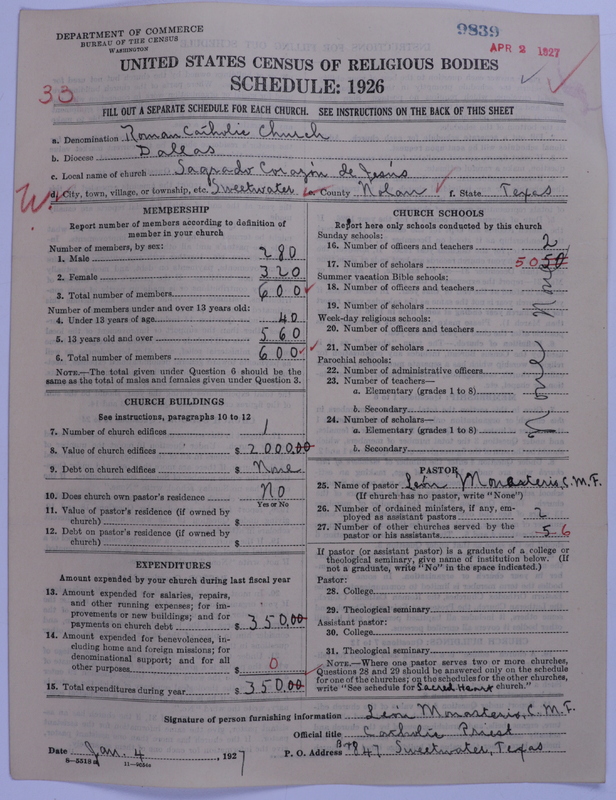 DEPARTMENT OF COMMERCE
BUREAU OF THE CENSUS
WASHINGTON
9839
APR 2 1927
UNITED STATES CENSUS OF RELIGIOUS BODIES
SCHEDULE: 1926
33
FILL OUT A SEPARATE SCHEDULE FOR EACH CHURCH. SEE INSTRUCTIONS ON THE BACK OF THIS SHEET
a. Denomination Roman Catholic Church
b. Diocese Dallas
c. Local name of church Sagrado Corazón de Jesús
d. City, town, village, or township, etc. Sweetwater e. County Nolan f. State Texas
W.
MEMBERSHIP
Report number of members according to definition of
member in your church
Number of members, by sex:
1. Male 280
2. Female 320
3. Total number of members 600
Number of members under and over 13 years old:
4. Under 13 years of age 40
5. 13 years old and over 560
6. Total number of members 600
NOTE.—The total given under Question 6 should be
same as the total of males and females given under Question 3.
CHURCH BUILDINGS
See instructions, paragraphs 10 to 12
7. Number of church edifices 1
8. Value of church edifices $ 2000.00
9. Debt on church edifices $ None
10. Does church own pastor's residence No
Yes or No
11. Value of pastor's residence (if owned by
church) $
12. Debt on pastor's residence (if owned by
church) $
EXPENDITURES
Amount expended by your church during last fiscal year
13. Amount expended for salaries, repairs,
and other running expenses; for im-
provements or new buildings; and for
payments on church debt $ 350.00
14. Amount expended for benevolences, in-
cluding home and foreign missions; for
denominational support; and for all
other purposes $ 0
15. Total expenditures during year $ 350.00
CHURCH SCHOOLS
Report here only schools conducted by this church
Sunday schools:
16. Number of officers and teachers 2
17. Number of scholars 50 50
Summer vacation Bible schools:
18. Number of officers and teachers
19. Number of scholars
None
Week-day religious schools:
20. Number of officers and teachers
21. Number of scholars
Parochial schools:
22. Number of administrative officers
23. Number of teachers—
a. Elementary (grades 1 to 8)
b. Secondary
None
24. Number of scholars—
a. Elementary (grades 1 to 8)
b. Secondary
PASTOR
25. Name of pastor León Monasterio, C.M.F.
(If church has no pastor, write "None")
26. Number of ordained ministers, if any, em-
ployed as assistant pastors 2
27. Number of other churches served by the
pastor or his assistants 5 6
If pastor (or assistant pastor) is a graduate of a college or
theological seminary, give name of institution below. (If
not a graduate, write "No" in the space indicated.)
Pastor:
28. College
29. Theological seminary
Assistant pastor:
30. College
31. Theological seminary
NOTE.—Where one pastor serves two or more churches,
Questions 28 and 29 should be answered only on the schedule
for one of the churches; on the schedules for the other churches,
write "See schedule for Sacred Heart church."
Signature of person furnishing information León Monasterio, C.M.F.
Official title Catholic Priest
Date Jan. 4, 1927 P. O. Address Bx 847 Sweetwater, Texas